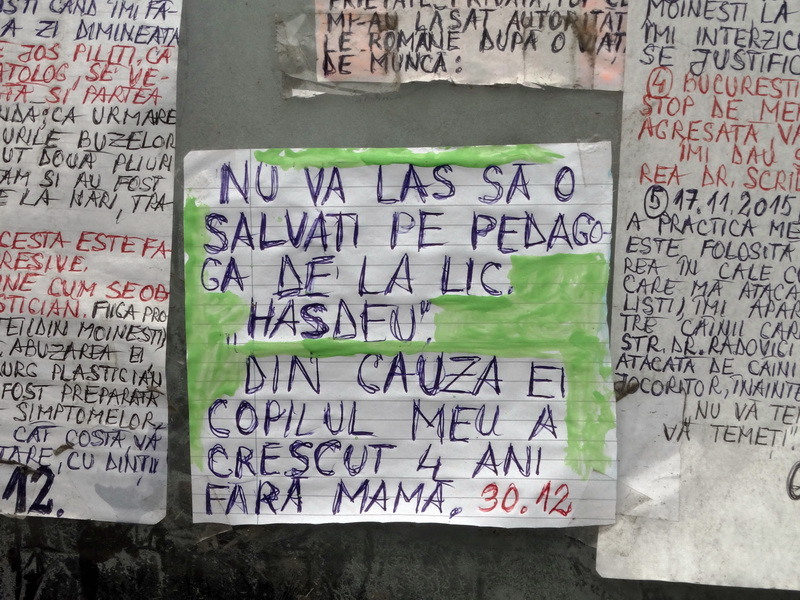 IMI FA-
A ZI DIMINEATA
JOS PILITI, CA
SE VE-
SI PARTEA
CA URMARE
BUZELOR
DOUĂ PLIURI
AM SI AU FOST
LA NARI, TRA-
ACESTA ESTE FA-
NE CUM SE OB-
FIICA PRO
DIN MOINESTI
ABUZAREA EI
PLASTICIAN
FOST PREPARATA
SIMPTOMELOR,
CAT COSTA VA
CU DINTII
12.
MI-AU LĂSAT AUTORITAT
LE ROMÂNE DUPĂ O VIAT
DE MUNCĂ:
NU VA LAS SĂ O
SALVATI PE PEDAGO-
GA DE LA LIC.
„HASDEU",
DIN CAUZA EI
COPILUL MEU A
CRESCUT 4 ANI
FARĂ MAMĂ. 30.12
MOINESTI LA
IMI INTERZIC
SE JUSTIFIC
④ BUCURESTI
STOP DE ME
AGRESATA VA
IMI DAU S
REA DR. SCRI
⑤ 17.11.2015
A PRACTICA ME
ESTE FOLOSITA
REA IN CALE CU
CARE MĂ ATACA
LISTI, IMI APAR
TRE CAINII CAR
STR. DR. RADOVICI
ATACATA DE CAINI
JOCORITOR, INAINTE
NU VA TE
VĂ TEMETI"